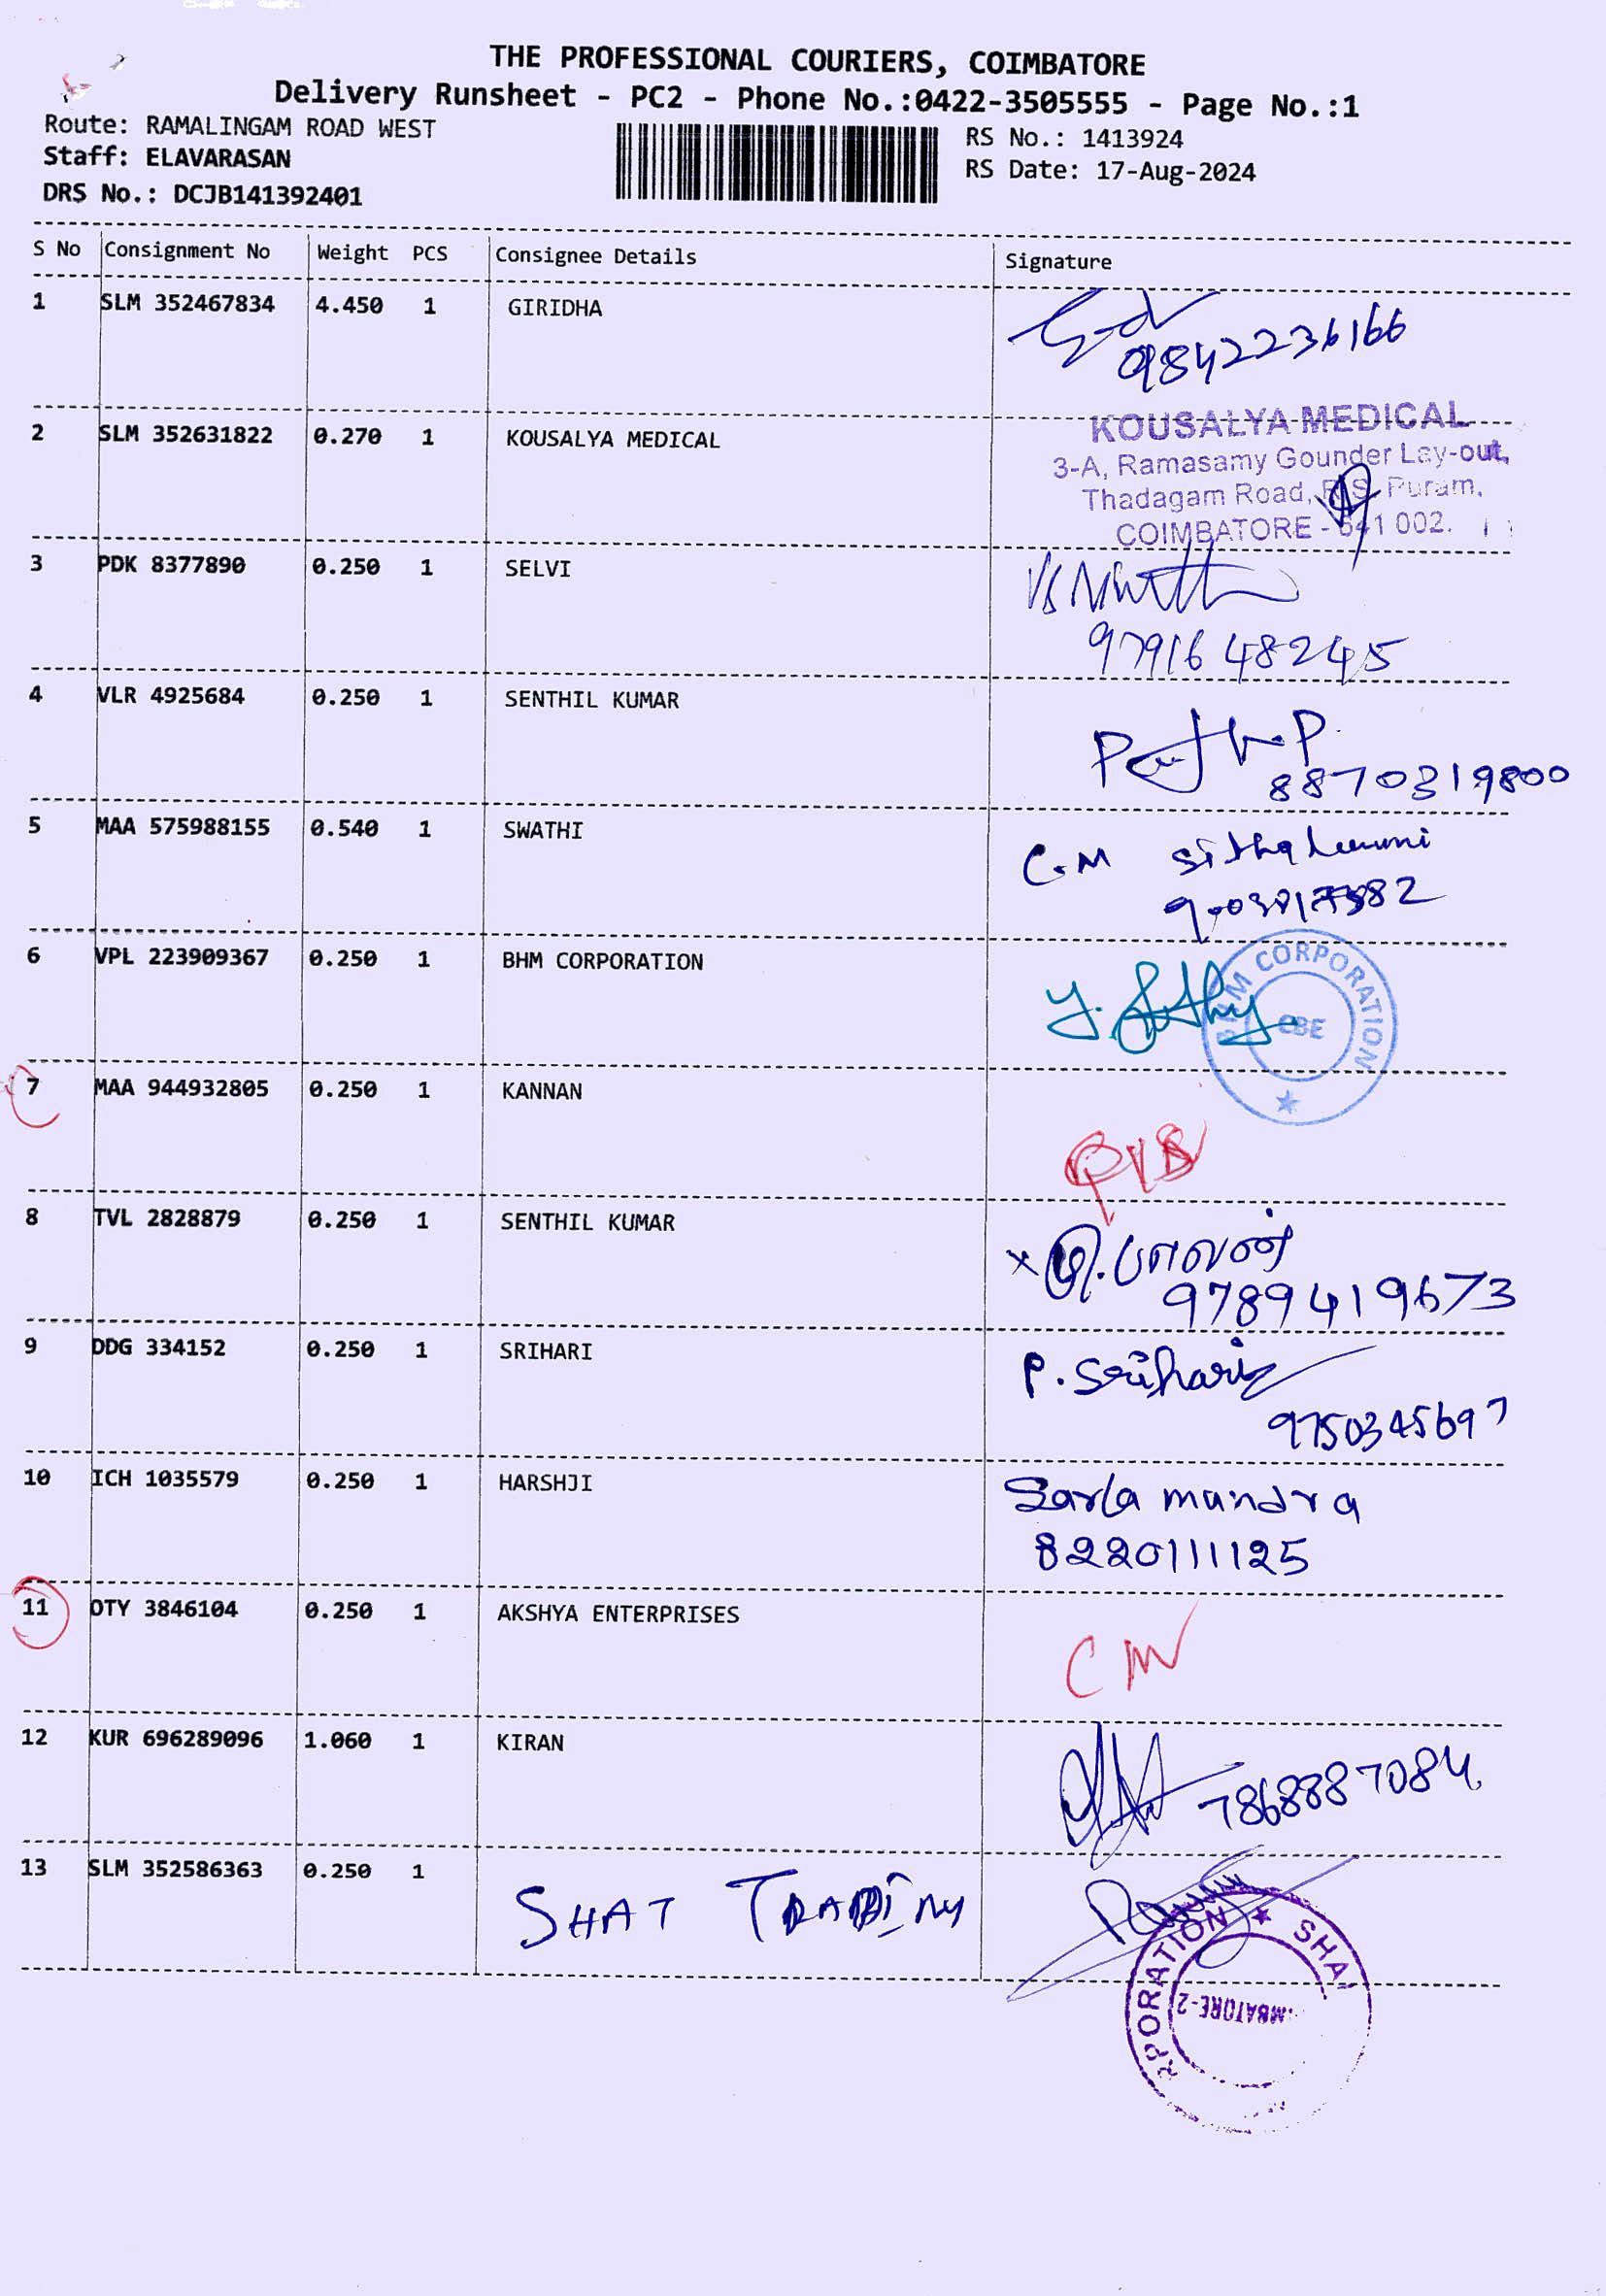 THE PROFESSIONAL COURIERS, COIMBATORE
Delivery Runsheet - PC2 - Phone No.:0422-3505555 - Page No.:1
Route: RAMALINGAM ROAD WEST
Staff: ELAVARASAN
DRS No.: DCJB141392401
RS No.: 1413924
RS Date: 17-Aug-2024
S No Consignment No Weight PCS Consignee Details Signature
1 SLM 352467834 4.450 1 GIRIDHA
9842236166
2 SLM 352631822 0.270 1 KOUSALYA MEDICAL
KOUSALYA MEDICAL
3-A, Ramasamy Gounder Lay-out,
Thadagam Road, R.S. Puram,
COIMBATORE - 641 002.
3 PDK 8377890 0.250 1 SELVI
9791648245
4 VLR 4925684 0.250 1 SENTHIL KUMAR
8870319800
5 MAA 575988155 0.540 1 SWATHI
C.M
6 VPL 223909367 0.250 1 BHM CORPORATION
BHM CORPORATION
CBE
7 MAA 944932805 0.250 1 KANNAN
8 TVL 2828879 0.250 1 SENTHIL KUMAR
9789419673
9 DDG 334152 0.250 1 SRIHARI
P. Srihari
9750345697
10 ICH 1035579 0.250 1 HARSHJI
Sarla mundra
8220111125
11 OTY 3846104 0.250 1 AKSHYA ENTERPRISES
CM
12 KUR 696289096 1.060 1 KIRAN
7868887084
13 SLM 352586363 0.250 1 SHAT
RPORATION ★ SHA
MBATORE-2